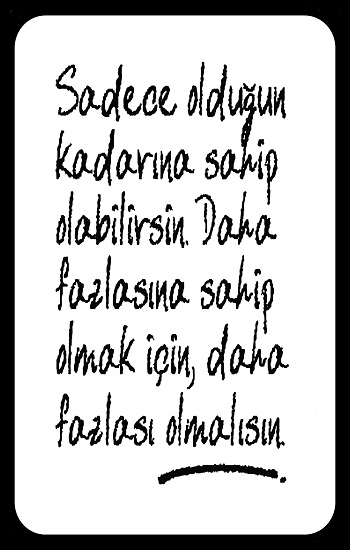 Sadece olduğun
kadarına sahip
olabilirsin. Daha
fazlasına sahip
olmak için, daha
fazlası olmalısın.